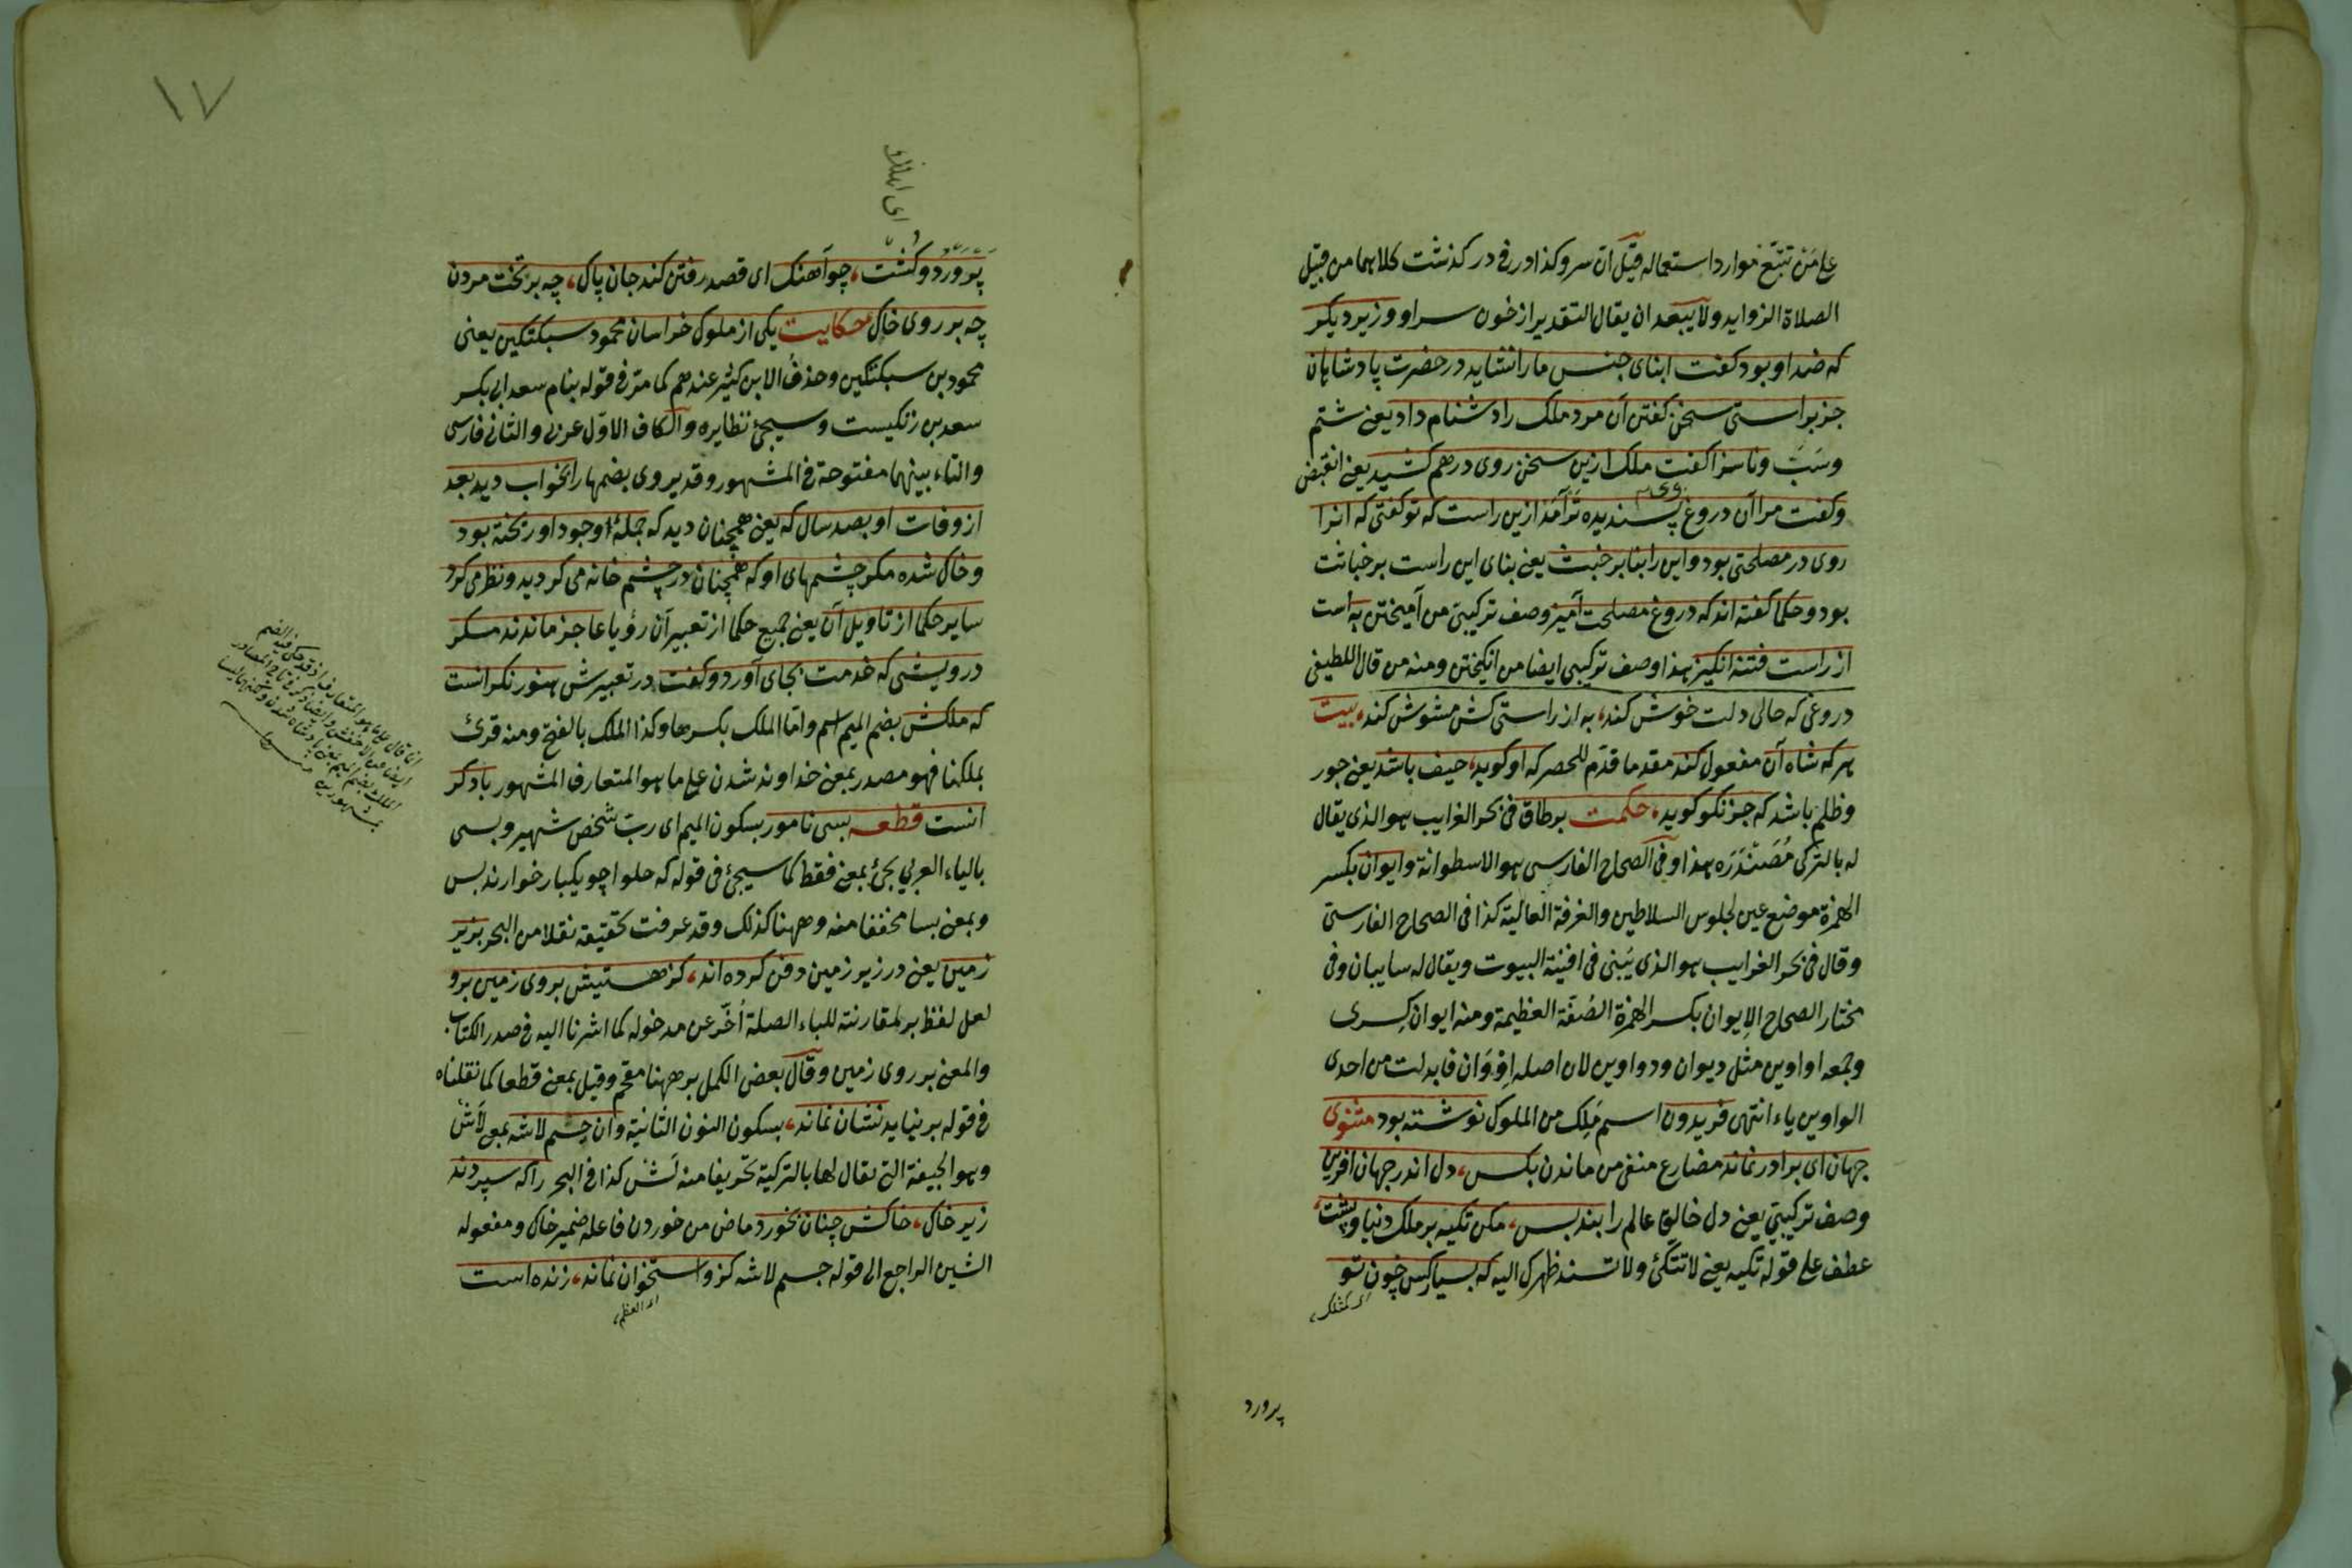 علی من تتبّع موارد استعماله قیل آن سر و کذا در فی در کذشت کلاهما من قبیل
الصلاة الزواید ولا یبعد ان یقال التقدیر از خون سر او وزیر دیکر
که ضد او بود کفت ابنای جنس ما را نشاید در حضرت پادشاهان
جز براستی سخن کفتن آن مرد ملک را دشنام داد یعنی شتم
وسَبَّ وناسزا کفت ملک ازین سخن روی درهم کشید یعنی انقبض
وکفت مرا آن دروغ وی پسندیده تر آمد ازین راست که تو کفتی که انرا
روی در مصلحتی بود واین را بنا بر خبث یعنی بنای این راست بر خباثت
بود وحکما کفته اند که دروغ مصلحت آمیز وصف ترکیبی من آمیختن به است
از راست فتنه انکیز هذا وصف ترکیبی ایضا من انکیختن ومنه من قال اللطیفی
دروغی که حالی دلت خوش کند، به از راستی کش مشوش کند، بیت
هر که شاه آن مفعول کند مقدما قدّم للحصر که او کوید، حیف باشد یعنی جور
وظلم باشد که جز نکو کوید، حکمت بر طاق فی بحر الغرایب هو الذی یقال
له بالترکی مُصَنْدَرَه هذا وفی الصحاح الفارسی هو الاسطوانة وایوان بکسر
الهمزة موضع عین لجلوس السلاطین والغرفة العالیة کذا فی الصحاح الفارسی
وقال فی بحر الغرایب هو الذی یُبنی فی افنیة البیوت ویقال له سایبان وفی
مختار الصحاح الاِیوان بکسر الهمزة الصُفّة العظیمة ومنه ایوان کِسری
وجمعه اواوین مثل دیوان ودواوین لان اصله اِوْوَان فابدلت من احدی
الواوین یاء انتهی فریدون اسم مَلِک من الملوک نوشته بود مثنوی
جهان ای برادر نماند مضارع منفی من ماندن بکس، دل اندر جهان افرین
وصف ترکیبی یعنی دل خالق عالم را بند بس، مکن تکیه بر ملک دنیا وپشت،
عطف علی قوله تکیه یعنی لا تتکئ ولا تسند ظهرک الیه که بسیار کس چون تو
ای کمثلک
پرورد
١٧
پَرْوَرْد وکُشت، چو آهنک ای قصد رفتن کند جان پاک، چه بر تخت مردن
چه بر روی خاک حکایت یکی از ملوک خراسان محمود سبکتکین یعنی
محمود بن سبکتکین وحذفُ الابن کثیر عندهم کما مرّ فی قوله بنام سعد ابی بکر
سعد بن زنکیست وسیجئ نظایره والکاف الاوّل عربی والثانی فارسی
والتاء بینهما مفتوحة فی المشهور وقد یروی بضمها را بخواب دید بعد
از وفات او بصد سال که یعنی همچنان دید که جملهٔ وجود او ریخته بود
وخاک شده مکر چشمهای او که همچنان در چشم خانه می کردید ونظر می کرد
سایر حکما از تاویل آن یعنی جمیع حکما از تعبیر آن رؤیا عاجز ماندند مکر
درویشی که خدمت بجای آورد وکفت در تعبیرش هنوز نکرانست
که ملکش بضم المیم اسم وامّا الملک بکسرها وکذا الملک بالفتح ومنه قرئ
بملکنا فهو مصدر بمعنی خداوند شدن علی ما هو المتعارف المشهور با دکر
انست قطعه بسی نامور بسکون المیم ای ربّ شخص شهیر وبسی
بالیاء العربی یجئ بمعنی فقط کما سیجئ فی قوله که حلوا چو یکبار خوارند بس
وبمعنی بسا مخففا منه وههنا کذلک وقد عرفت تحقیقه نقلا من البحر بزیر
زمین یعنی در زیر زمین دفن کرده اند، کز هستیش بروی زمین بر و
لعل لفظ بر لمقارنته للباء الصلة اُخّر عن مدخوله کما اشرنا الیه فی صدر الکتاب
والمعنی بر روی زمین وقال بعض الکمل بر ههنا مقحم وقیل بمعنی قطعا کما نقلناه
فی قوله بر نیاید نشان نماند، بسکون النون الثانیة وان جسم لاشه بمعنی لَاشْ
وهو الجیفة التی یقال لها بالترکیة تحریفا منه لَشْ کذا فی البحر را که سپردند
زیر خاک، خاکش چنان بخورد ماض من خوردن فاعله ضمیر خاک ومفعوله
الشین الراجع الی قوله جسم لاشه کزو استخوان نماند، زنده است
ای العظم،